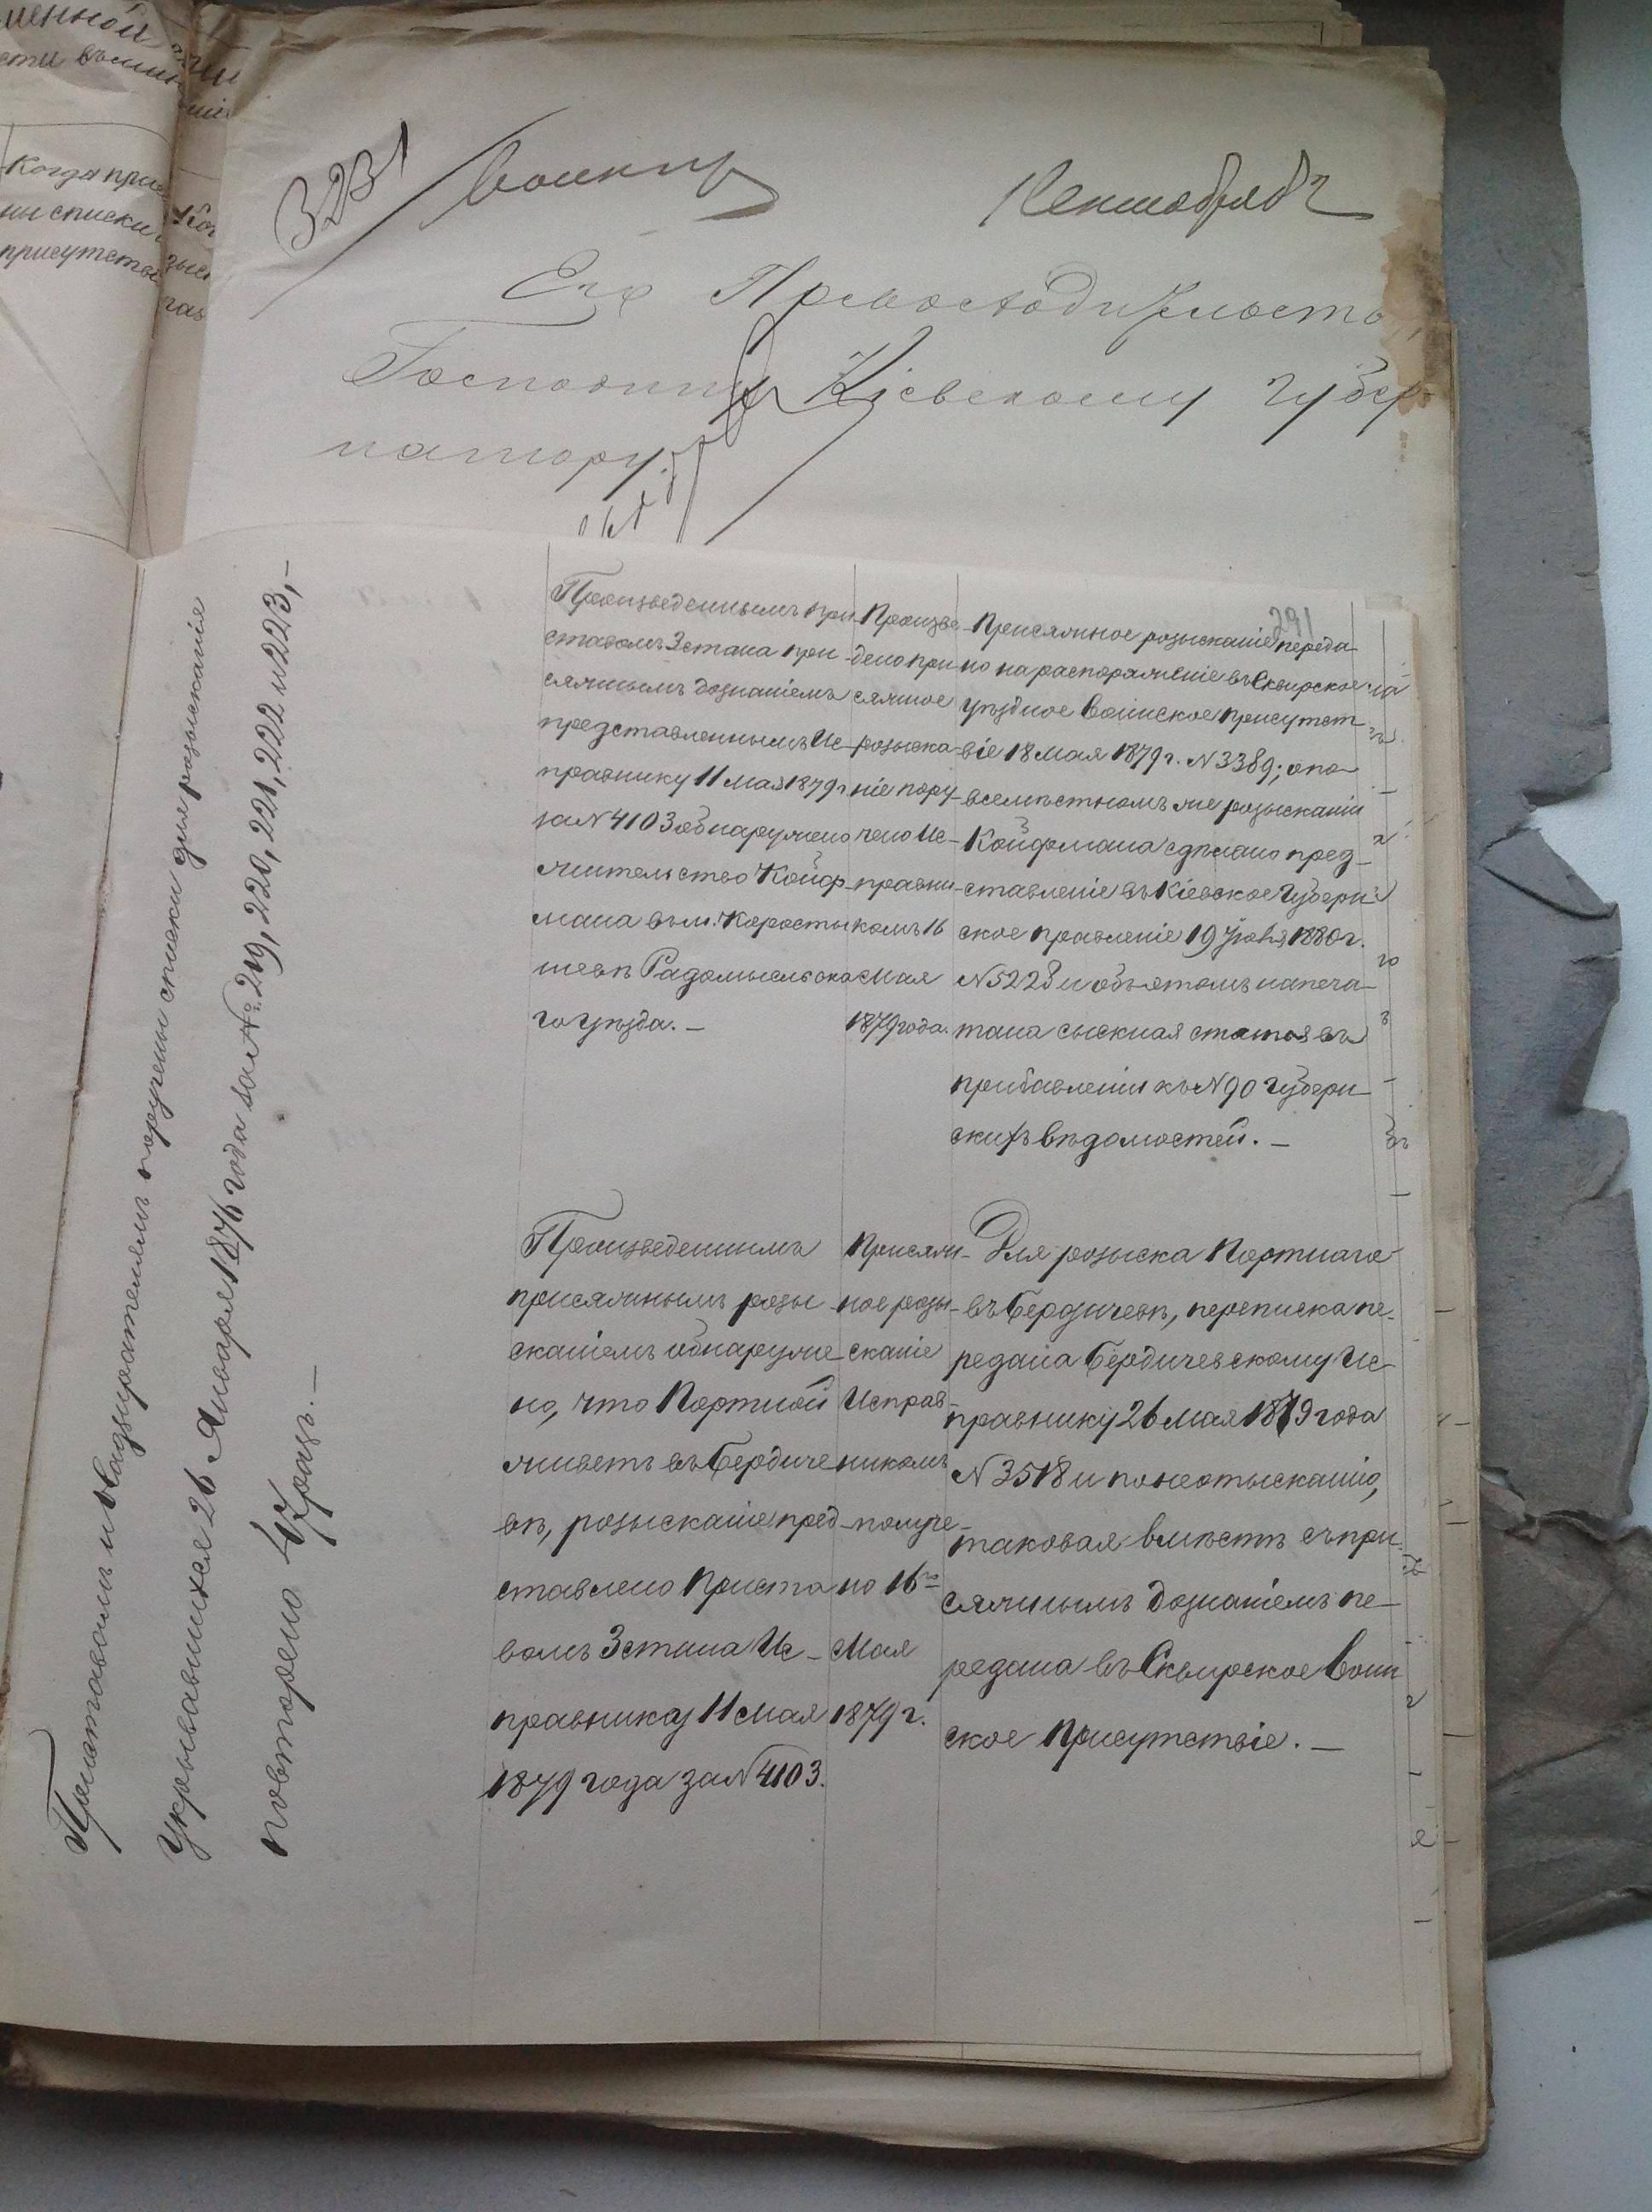 менной
Когда при
ни списки
присутств
3231
Его Превосходительст
Господину Кіевскому Губер
натору.
Приставамъ и Надзирателямъ поручены списки для розысканія
Укрывавшихся 26 Января 1876 года за №: 219, 220, 221, 222 и 223,-
повторено 47 разъ. —
291
Произведеннымъ При-
ставомъ 3 стана при
сяжнымъ дознаніемъ
представленнымъ Ис-
правнику 11 Мая 1879 г
за N 4103 обнаружено
жительство Койф-
мана въ м. Коросты
шевѣ Радомысльска
го уѣзда. —
Произве-
дено при
сяжное
розыска-
ніе пору-
чено Ис-
правни-
комъ 16
Мая
1879 года.
Присяжное розысканіе переда-
но на распоряженіе въ Сквирское
уѣздное Воинское присутст-
віе 18 Мая 1879 г. N 3389; о по-
всемѣстномъ же розысканіи
Койфмана сдѣлано пред-
ставленіе въ Кіевское Губерн-
ское правленіе 19 Іюня 1880 г.
N 5228 и объ этомъ напеча-
тана сыскная статья въ
прибавленіи къ N 90 Губерн-
скихъ вѣдомостей. —
Произведеннымъ
присяжнымъ розы
сканіемъ обнаруже-
но, что Портной
живетъ въ Бердиче
вѣ, розысканіе пред-
ставлено Приста
вомъ 3 стана Ис-
правнику 11 Мая
1879 года за N 4103.
Присяж-
ное розы-
сканіе
Исправ-
никомъ
получе-
но 16го
Мая
1879 г.
Для розыска Портнаго
въ Бердичевѣ, переписка пе-
редана Бердичевскому Ис-
правнику 26 Мая 1879 года
N 3518 и по неотысканію,
таковая вмѣстѣ съ при-
сяжнымъ дознаніемъ пе-
редана въ Сквирское Воин
ское Присутствіе. —